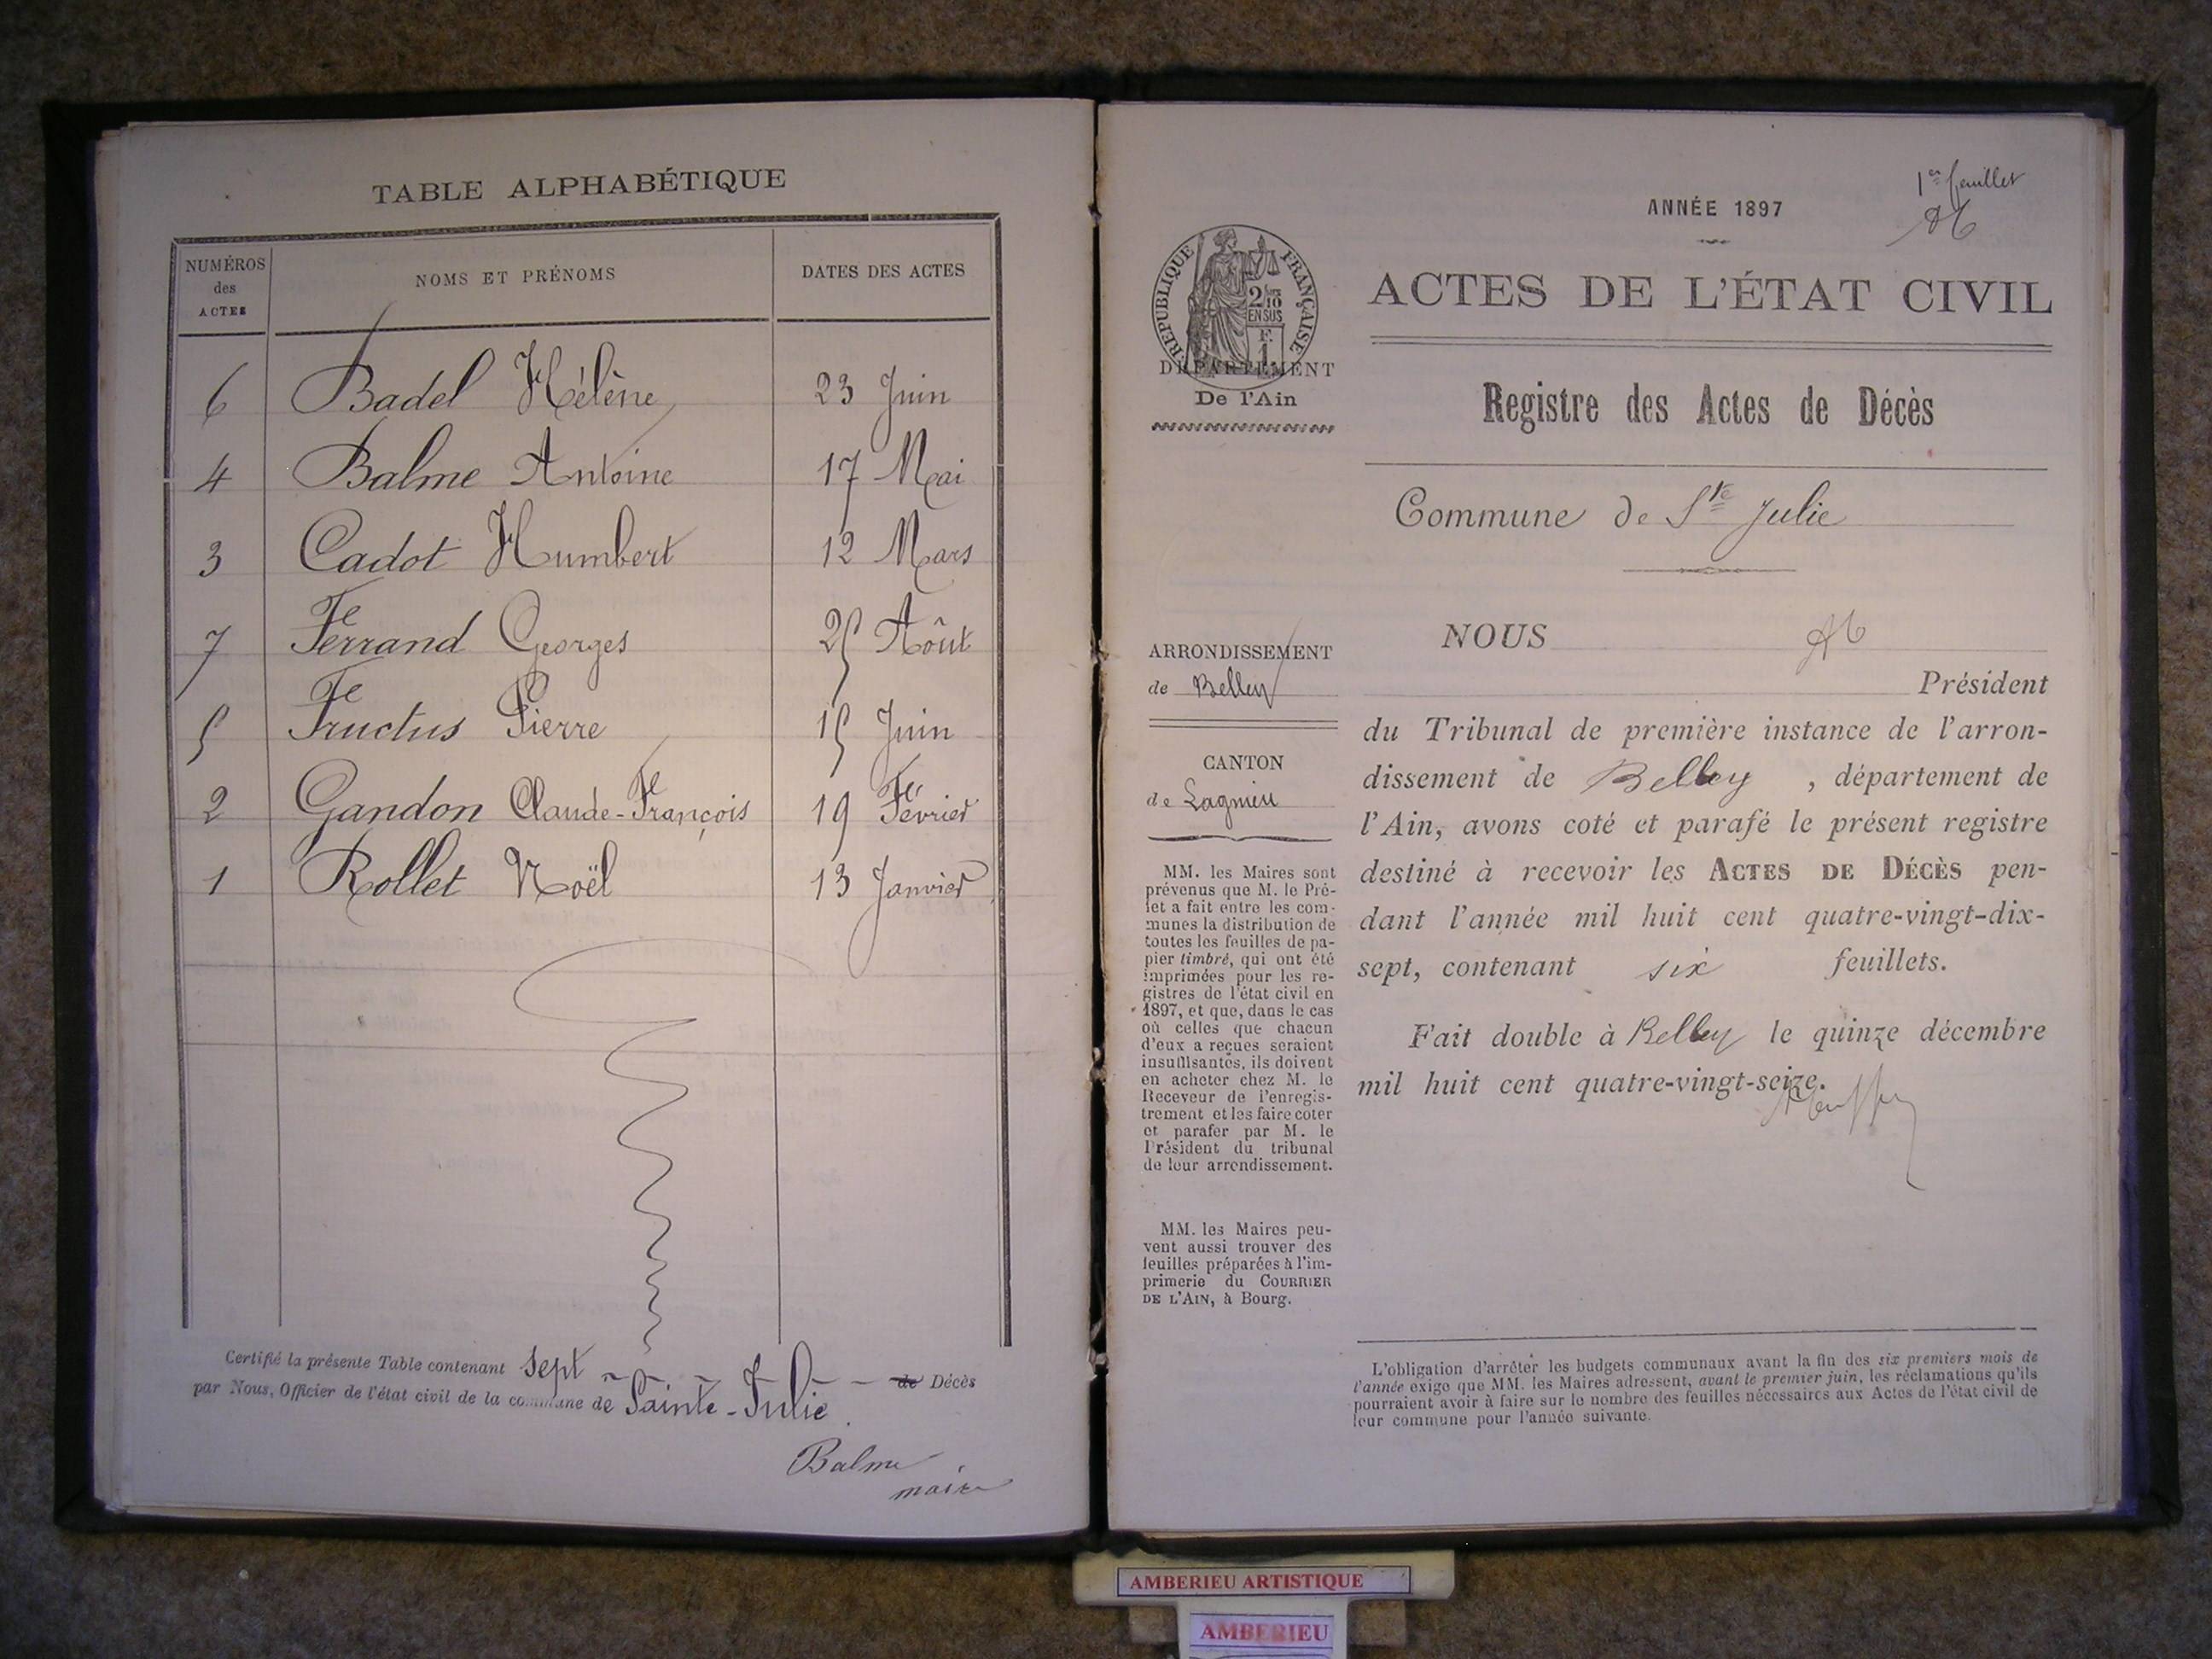 TABLE ALPHABÉTIQUE
NUMÉROS des ACTES NOMS ET PRÉNOMS DATES DES ACTES
6 Badel Hélène 23 Juin
4 Balme Antoine 17 Mai
3 Cadot Humbert 12 Mars
7 Ferrand Georges 25 Août
5 Fructus Pierre 15 Juin
2 Gandon Claude-François 19 Février
1 Rollet Noël 13 Janvier
Certifié la présente Table contenant sept de Décès
par Nous, Officier de l'état civil de la commune de Sainte-Julie.
Balme
maire
1er feuillet
ANNÉE 1897
RÉPUBLIQUE FRANÇAISE
2/10
EN SUS
F.
1
DÉPARTEMENT
De l'Ain
ACTES DE L'ÉTAT CIVIL
Registre des Actes de Décès
Commune de Ste Julie
ARRONDISSEMENT
de Belley
CANTON
de Lagnieu
MM. les Maires sont
prévenus que M. le Pré-
fet a fait entre les com-
munes la distribution de
toutes les feuilles de pa-
pier timbré, qui ont été
imprimées pour les re-
gistres de l'état civil en
1897, et que, dans le cas
où celles que chacun
d'eux a reçues seraient
insuffisantes, ils doivent
en acheter chez M. le
Receveur de l'enregis-
trement et les faire coter
et parafer par M. le
Président du tribunal
de leur arrondissement.
MM. les Maires peu-
vent aussi trouver des
feuilles préparées à l'im-
primerie du COURRIER
DE L'AIN, à Bourg.
NOUS
Président
du Tribunal de première instance de l'arron-
dissement de Belley , département de
l'Ain, avons coté et parafé le présent registre
destiné à recevoir les ACTES DE DÉCÈS pen-
dant l'année mil huit cent quatre-vingt-dix-
sept, contenant six feuillets.
Fait double à Belley le quinze décembre
mil huit cent quatre-vingt-seize.
L'obligation d'arrêter les budgets communaux avant la fin des six premiers mois de
l'année exige que MM. les Maires adressent, avant le premier juin, les réclamations qu'ils
pourraient avoir à faire sur le nombre des feuilles nécessaires aux Actes de l'état civil de
leur commune pour l'année suivante.
AMBERIEU ARTISTIQUE
AMBERIEU